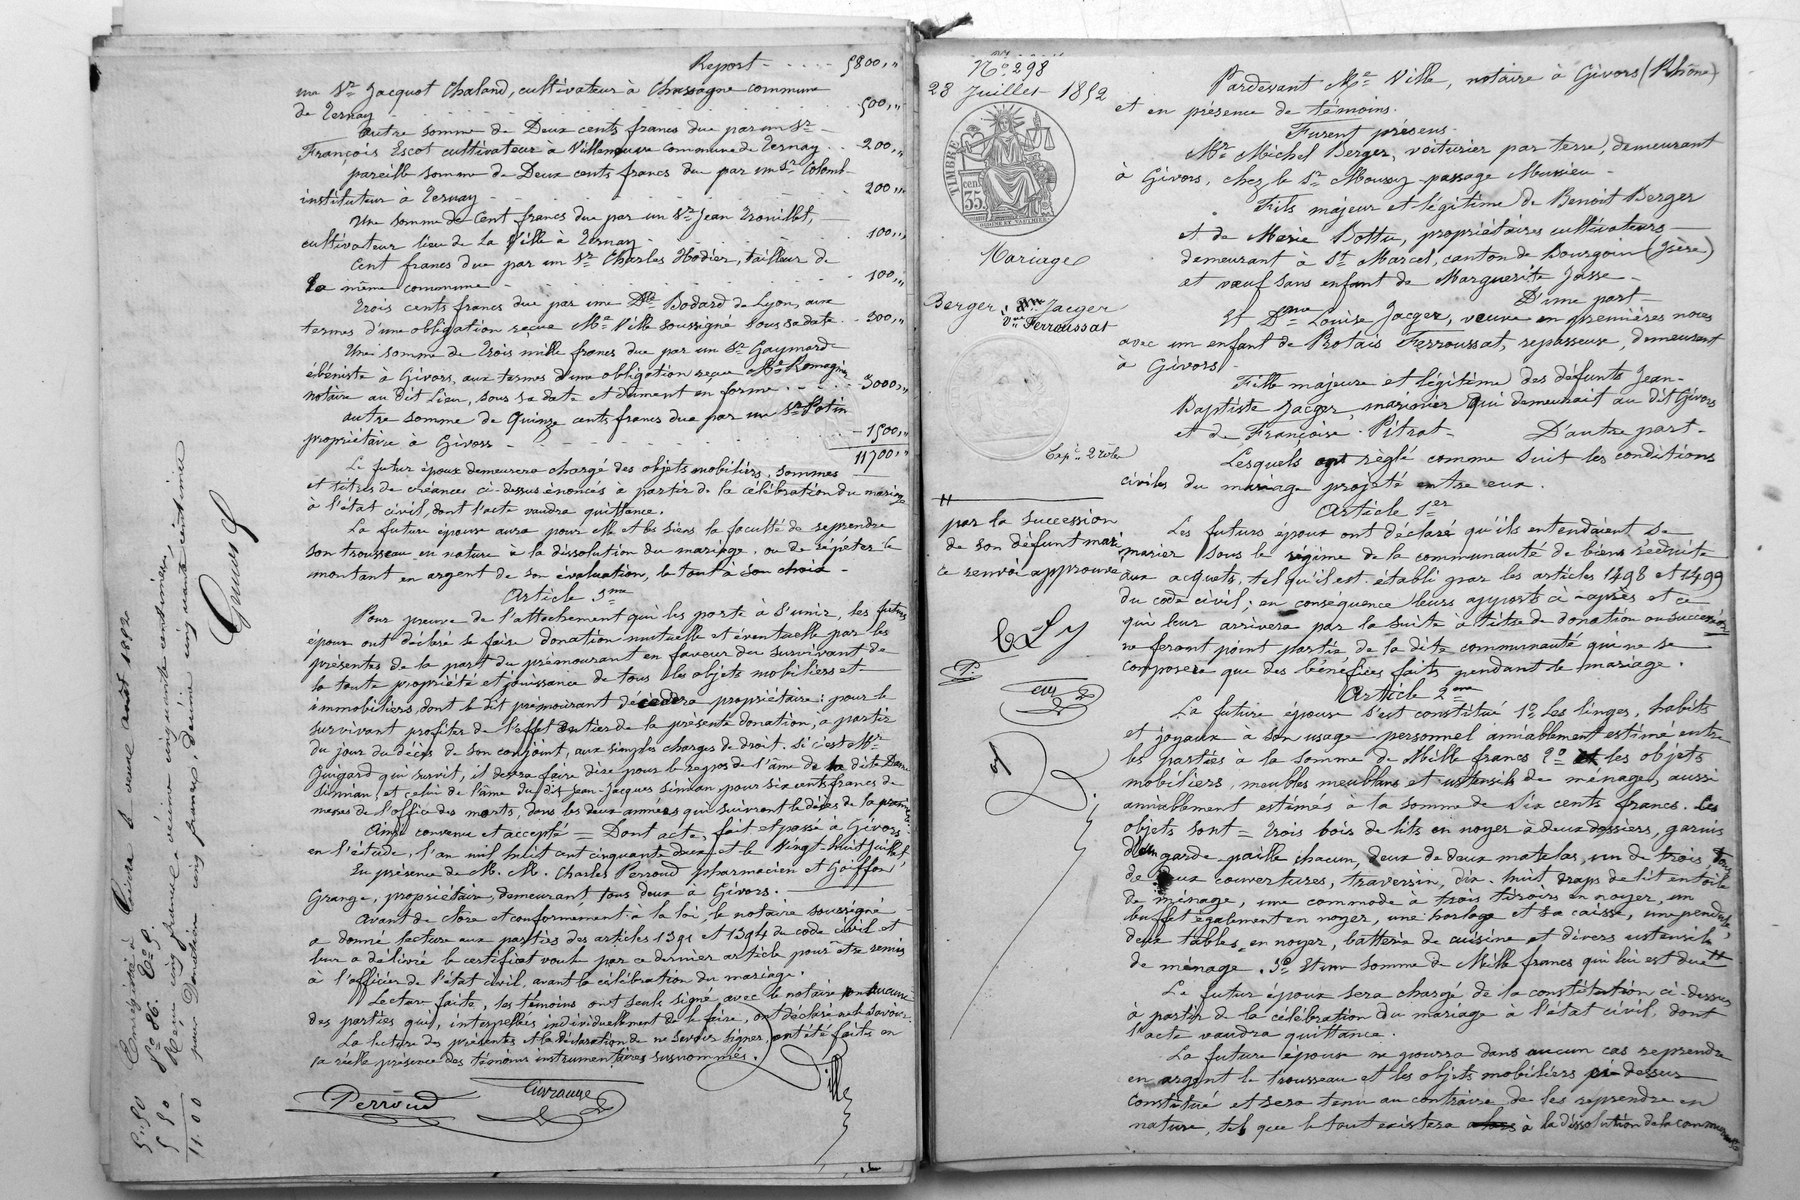 Report - - - - 5800,"
un Sr Jacquot Chaland, cultivateur à Chassagne commune
de Ternay - - - 500,"
autre somme de Deux cents francs due par un Sr
François Escot cultivateur à Villeneuve commune de Ternay - 200,"
pareille somme de Deux cents francs due par un Sr Colomb
instituteur à Ternay - - - 200,"
Une somme de Cent francs due par un Sr Jean Trouillet,
cultivateur lieu de La Ville à Ternay - 100,"
Cent francs due par un Sr Charles Hodier, tailleur de
la même commune - - - 100,"
Trois cents francs due par une Dlle Bodard de Lyon, aux
termes d'une obligation reçue Me Ville soussigné sous sa date - 300,"
Une somme de Trois mille francs due par un Sr Gaymard
ébéniste à Givors, aux termes d'une obligation reçue Me Romagny
notaire au dit lieu, sous sa date et dument en forme - - 3000,"
autre somme de Quinze cents francs due par un Sr Patin
propriétaire à Givors - - - 1500,"
11700,"
Le futur époux demeurera chargé des objets mobiliers, sommes
et titres de créances ci-dessus énoncés à partir de la célébration du mariage
à l'état civil, dont l'acte vaudra quittance.
La future épouse aura pour elle et les siens la faculté de reprendre
son trousseau en nature à la dissolution du mariage, ou de répéter le
montant en argent de son évaluation, le tout à son choix -
Article 3me
Pour preuve de l'attachement qui les porte à s'unir, les futurs
époux ont déclaré se faire donation mutuelle et éventuelle par les
présentes de la part du prémourant en faveur du survivant de
la toute propriété et jouissance de tous les objets mobiliers et
immobiliers, dont le dit prémourant décédera propriétaire : pour le
survivant profiter de l'effet entier de la présente donation, a partir
du jour du décès de son conjoint, aux simples charges de droit. Si c'est Mr
Guigard qui survit, il devra faire dire pour le repos de l'âme de la dite Dame
Simian, et celui de l'âme du dit Jean-Jacques Simian pour six cents francs de
messes de l'office des morts, dans les deux années qui suivront le décès de la
Ainsi convenu et accepté = Dont acte, fait et passé à Givors
en l'étude, l'an mil huit cent cinquante deux et le Vingt-huit juillet,
En présence de M. M. Charles Perroud pharmacien et
Grange, propriétaire, demeurant tous deux à Givors.
Avant de clore et conformément à la loi, le notaire soussigné
a donné lecture aux parties des articles 1391 et 1394 du code civil et
leur a délivré le certificat voulu par ce dernier article pour être remis
à l'officier de l'état civil, avant la célébration du mariage.
Lecture faite, les témoins ont seuls signé avec le notaire, non aucune
des parties qui, interpellées individuellement de le faire, ont déclaré ne le savoir.
La lecture des présentes et la déclaration de ne savoir signer, ont été faites en
la réelle présence des témoins instrumentaires susnommés.
Perroud
Ville
Enregistré à Givors le deux août 1852
fo 86. Co 9.
Reçu cinq francs, décime cinquante centimes;
pour Donation cinq francs, décime cinquante centimes
5.50
5 50
11.00
No 298
28 Juillet 1852
TIMBRE
cen. 35.
Mariage
Berger, & Jaeger
Vve Ferroussat
Expée 2 rôles
par la succession
de son défunt mari
ce renvoi approuvé
Pardevant Me Ville, notaire à Givors (Rhône)
et en présence de témoins.
Furent présens
Mr Michel Berger, voiturier par terre, demeurant
à Givors, chez le Sr Moussy passage Mussieu -
Fils majeur et légitime de Benoit Berger
et de Marie Bottu, propriétaires cultivateurs
demeurant à St Marcel, canton de Bourgoin (Isère)
et veuf sans enfant de Marguerite Jasse -
D'une part -
Et Dme Louise Jaeger, veuve en premières noces
avec un enfant de Protais Ferroussat, repasseuse, demeurant
à Givors
Fille majeure et légitime des défunts Jean-
Baptiste Jaeger, marinier qui demeurait au dit Givors
et de Françoise Pitrat - D'autre part -
Lesquels ont réglé comme suit les conditions
civiles du mariage projeté entre eux.
Article 1er
Les futurs époux ont déclaré qu'ils entendaient se
marier sous le régime de la communauté de biens réduite
aux acquets, tel qu'il est établi par les articles 1498 et 1499
du code civil; en conséquence leurs apports ci-après et ce
qui leur arrivera par la suite à titre de donation ou succession
ne feront point partie de la dite communauté qui ne se
composera que des bénéfices faits pendant le mariage.
Article 2me
La future épouse s'est constitué 1o Les linges, habits
et joyaux a son usage personnel amiablement estimé entre
les parties à la somme de Mille francs 2o les objets
mobiliers, meubles meublans et ustensils de ménage, aussi
amiablement estimés à la somme de Six cents francs. Les
objets sont = Trois bois de lits en noyer à deux dossiers, garnis
d'un garde paille chacun, deux de deux matelas, un de trois,
de deux couvertures, traversin, dix-huit draps de lit en toile
de ménage, une commode à trois tiroirs en noyer, un
buffet également en noyer, une horloge et sa caisse, une pendule,
deux tables en noyer, batterie de cuisine et divers ustensils
de ménage. 3o Et une somme de Mille francs qui lui est due
Le futur époux sera chargé de la constitution ci-dessus
à partir de la célébration du mariage à l'état civil, dont
l'acte vaudra quittance.
La future épouse ne pourra dans aucun cas reprendre
en argent le trousseau et les objets mobiliers ci-dessus
constitué et sera tenu au contraire de les reprendre en
nature, tel que le tout existera à la dissolution de la communauté